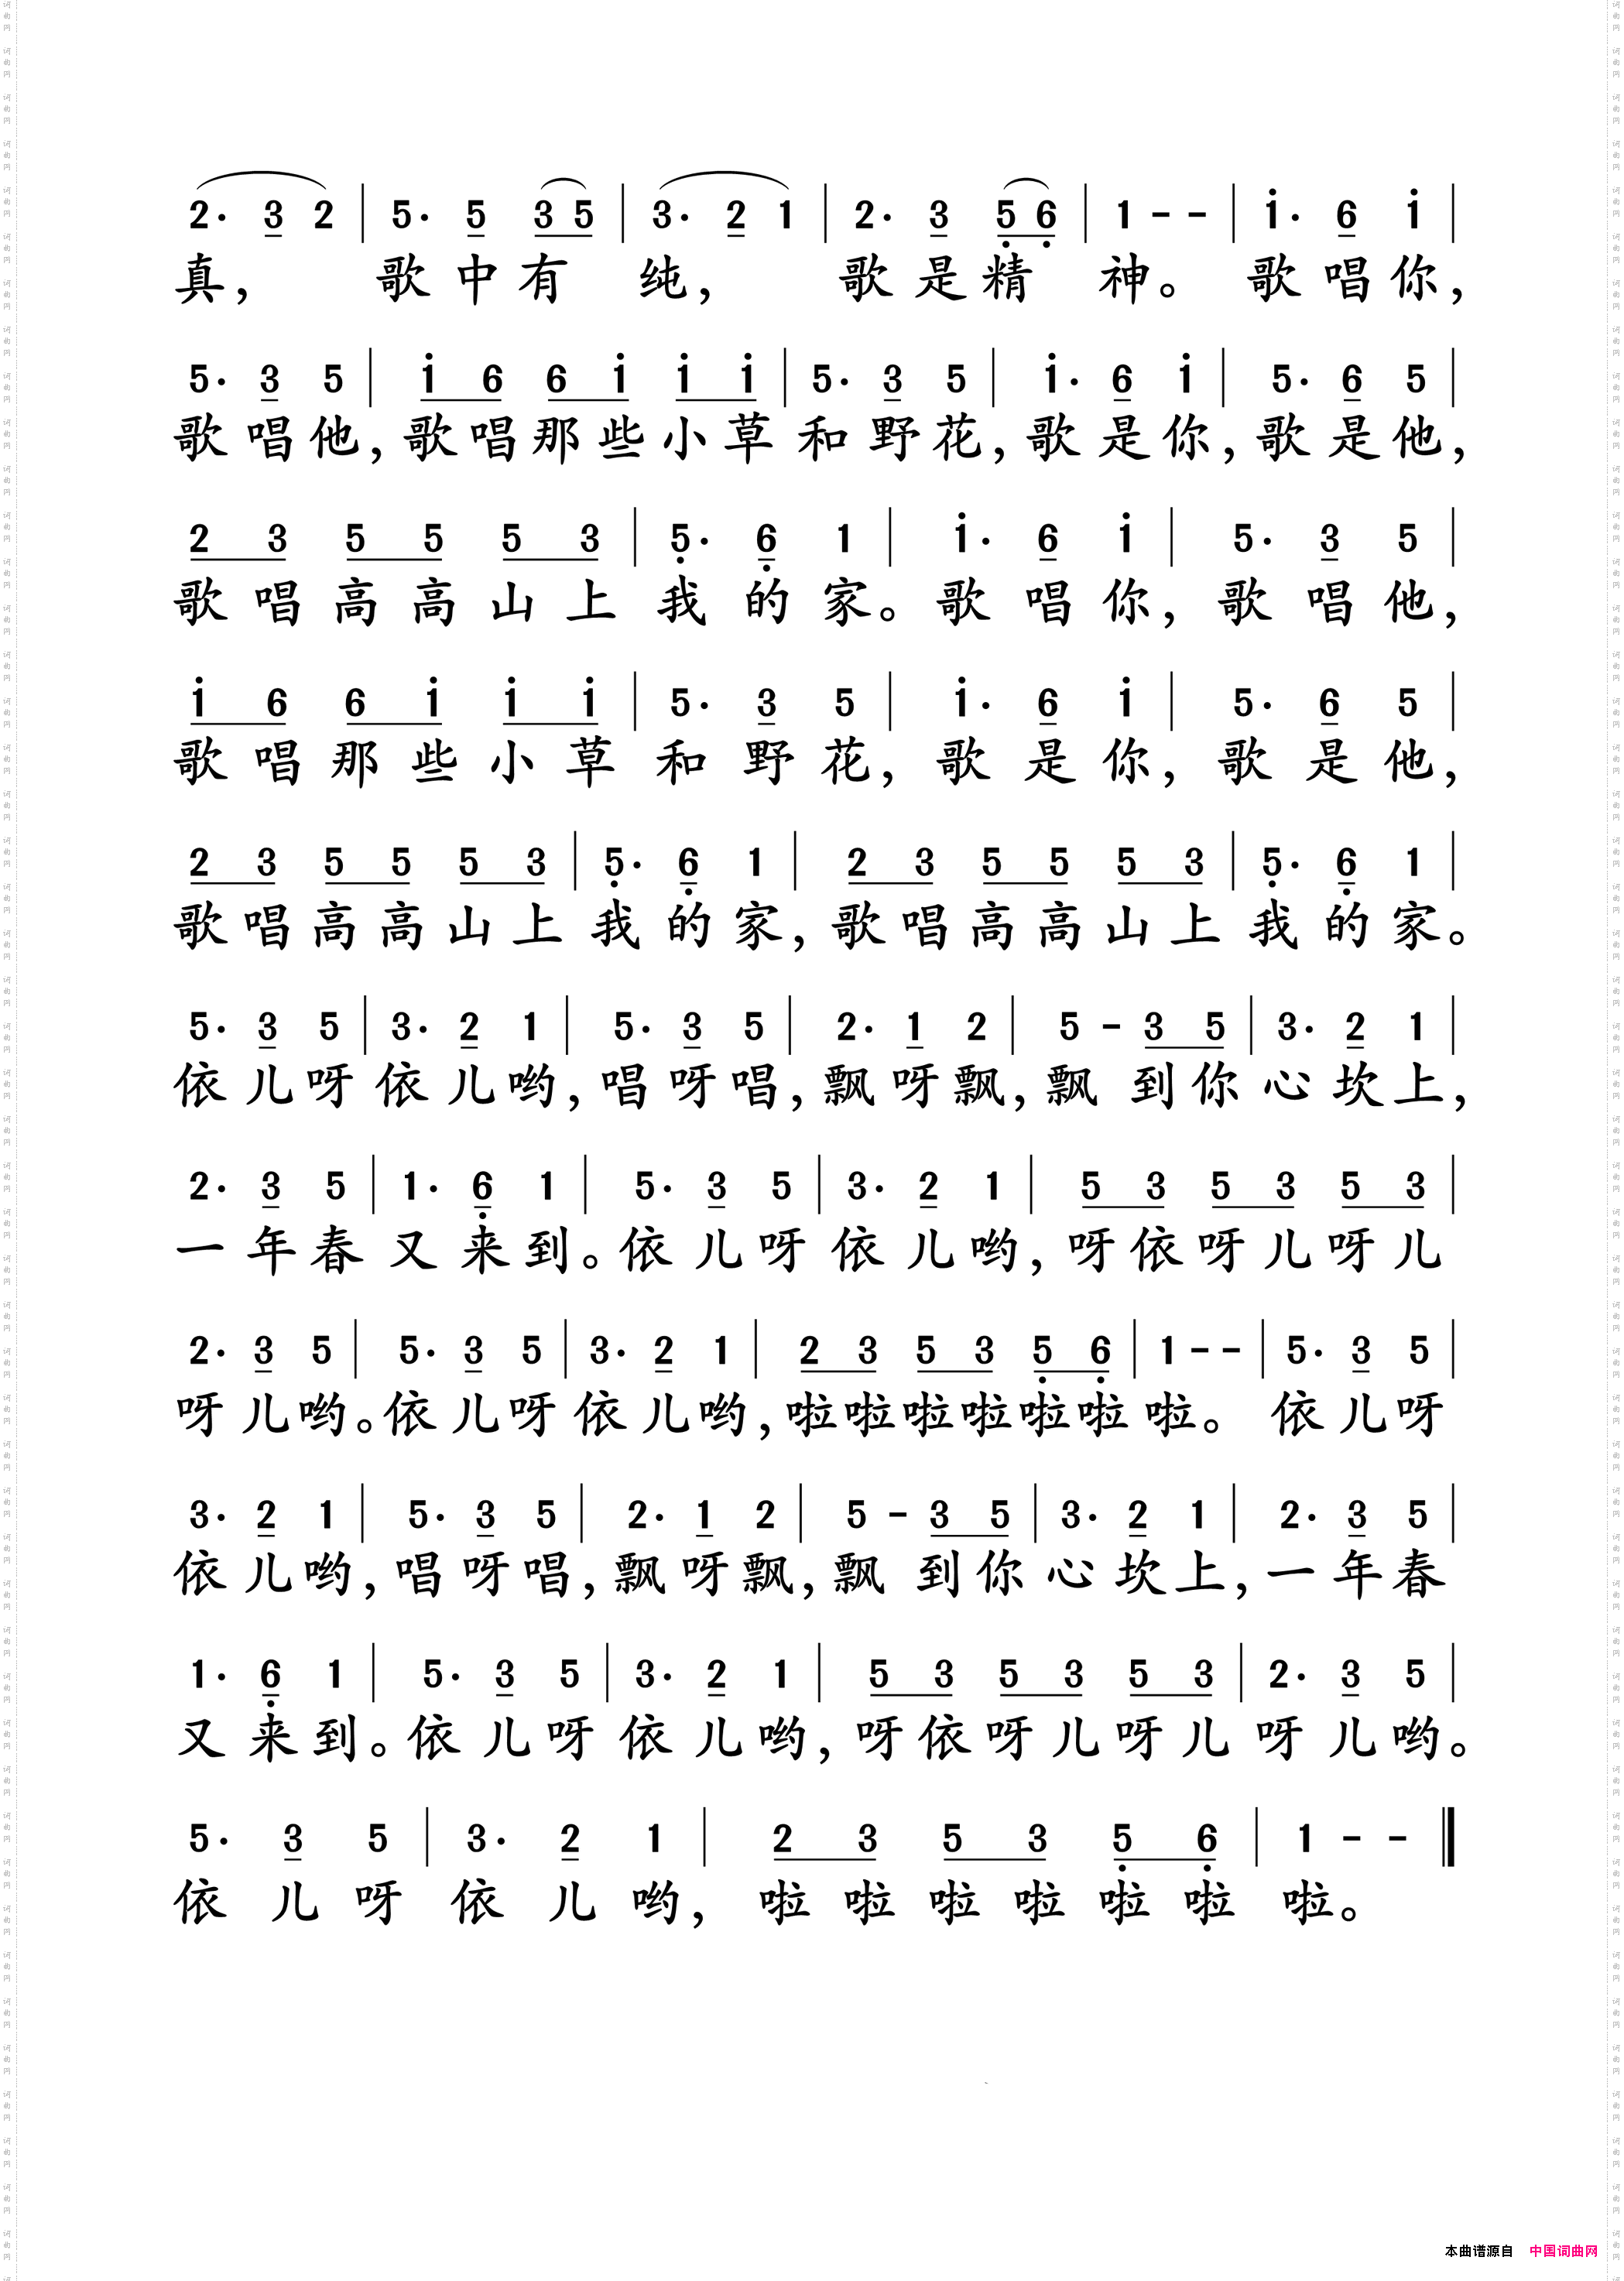 2· 3 2 | 5· 5 3 5 | 3· 2 1 | 2· 3 5̣ 6̣ | 1 - - | 1̇· 6 1̇ |
真， 歌中有 纯， 歌是精 神。 歌唱你，
5· 3 5 | 1̇ 6 6 1̇ 1̇ 1̇ | 5· 3 5 | 1̇· 6 1̇ | 5· 6 5 |
歌唱他，歌唱那些小草和野花，歌是你，歌是他，
2 3 5 5 5 3 | 5̣· 6̣ 1 | 1̇· 6 1̇ | 5· 3 5 |
歌唱高高山上我的家。歌唱你，歌唱他，
1̇ 6 6 1̇ 1̇ 1̇ | 5· 3 5 | 1̇· 6 1̇ | 5· 6 5 |
歌唱那些小草和野花，歌是你，歌是他，
2 3 5 5 5 3 | 5̣· 6̣ 1 | 2 3 5 5 5 3 | 5̣· 6̣ 1 |
歌唱高高山上我的家，歌唱高高山上我的家。
5· 3 5 | 3· 2 1 | 5· 3 5 | 2· 1 2 | 5 - 3 5 | 3· 2 1 |
依儿呀依儿哟，唱呀唱，飘呀飘，飘到你心坎上，
2· 3 5 | 1· 6̣ 1 | 5· 3 5 | 3· 2 1 | 5 3 5 3 5 3 |
一年春又来到。依儿呀依儿哟，呀依呀儿呀儿
2· 3 5 | 5· 3 5 | 3· 2 1 | 2 3 5 3 5̣ 6̣ | 1 - - | 5· 3 5 |
呀儿哟。依儿呀依儿哟，啦啦啦啦啦啦啦。 依儿呀
3· 2 1 | 5· 3 5 | 2· 1 2 | 5 - 3 5 | 3· 2 1 | 2· 3 5 |
依儿哟，唱呀唱，飘呀飘，飘到你心坎上，一年春
1· 6̣ 1 | 5· 3 5 | 3· 2 1 | 5 3 5 3 5 3 | 2· 3 5 |
又来到。依儿呀依儿哟，呀依呀儿呀儿呀儿哟。
5· 3 5 | 3· 2 1 | 2 3 5 3 5̣ 6̣ | 1 - - ‖
依儿呀依儿哟，啦啦啦啦啦啦啦。
本曲谱源自 中国词曲网